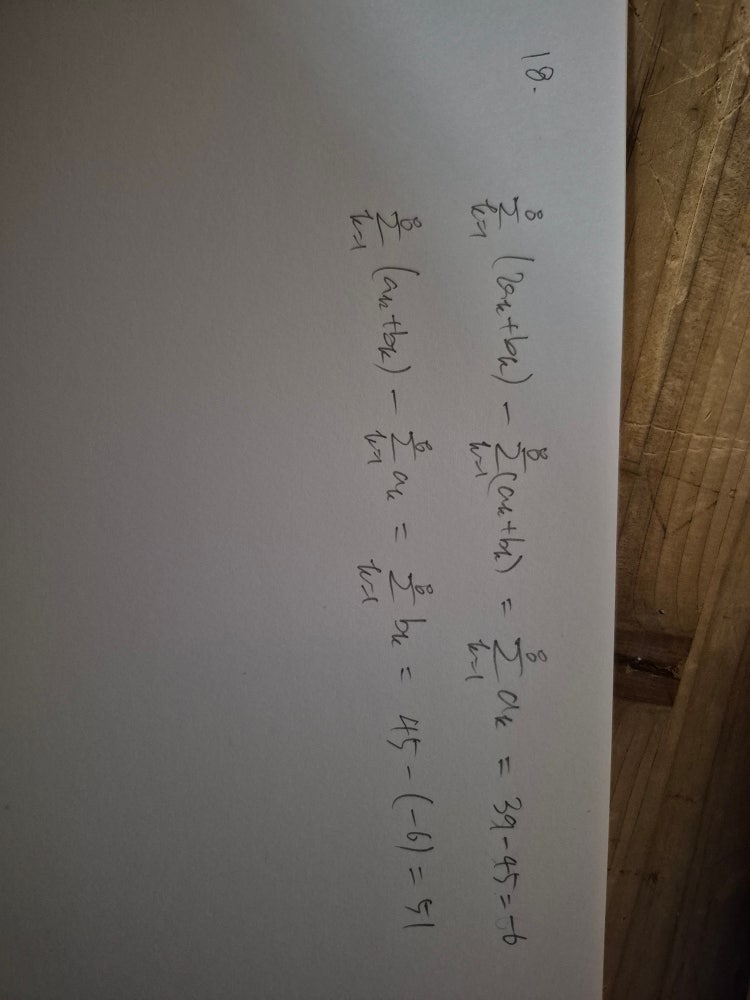 18.
$\sum_{k=1}^{8} (2a_k + b_k) - \sum_{k=1}^{8} (a_k + b_k) = \sum_{k=1}^{8} a_k = 39 - 45 = -6$
$\sum_{k=1}^{8} (a_k + b_k) - \sum_{k=1}^{8} a_k = \sum_{k=1}^{8} b_k = 45 - (-6) = 51$